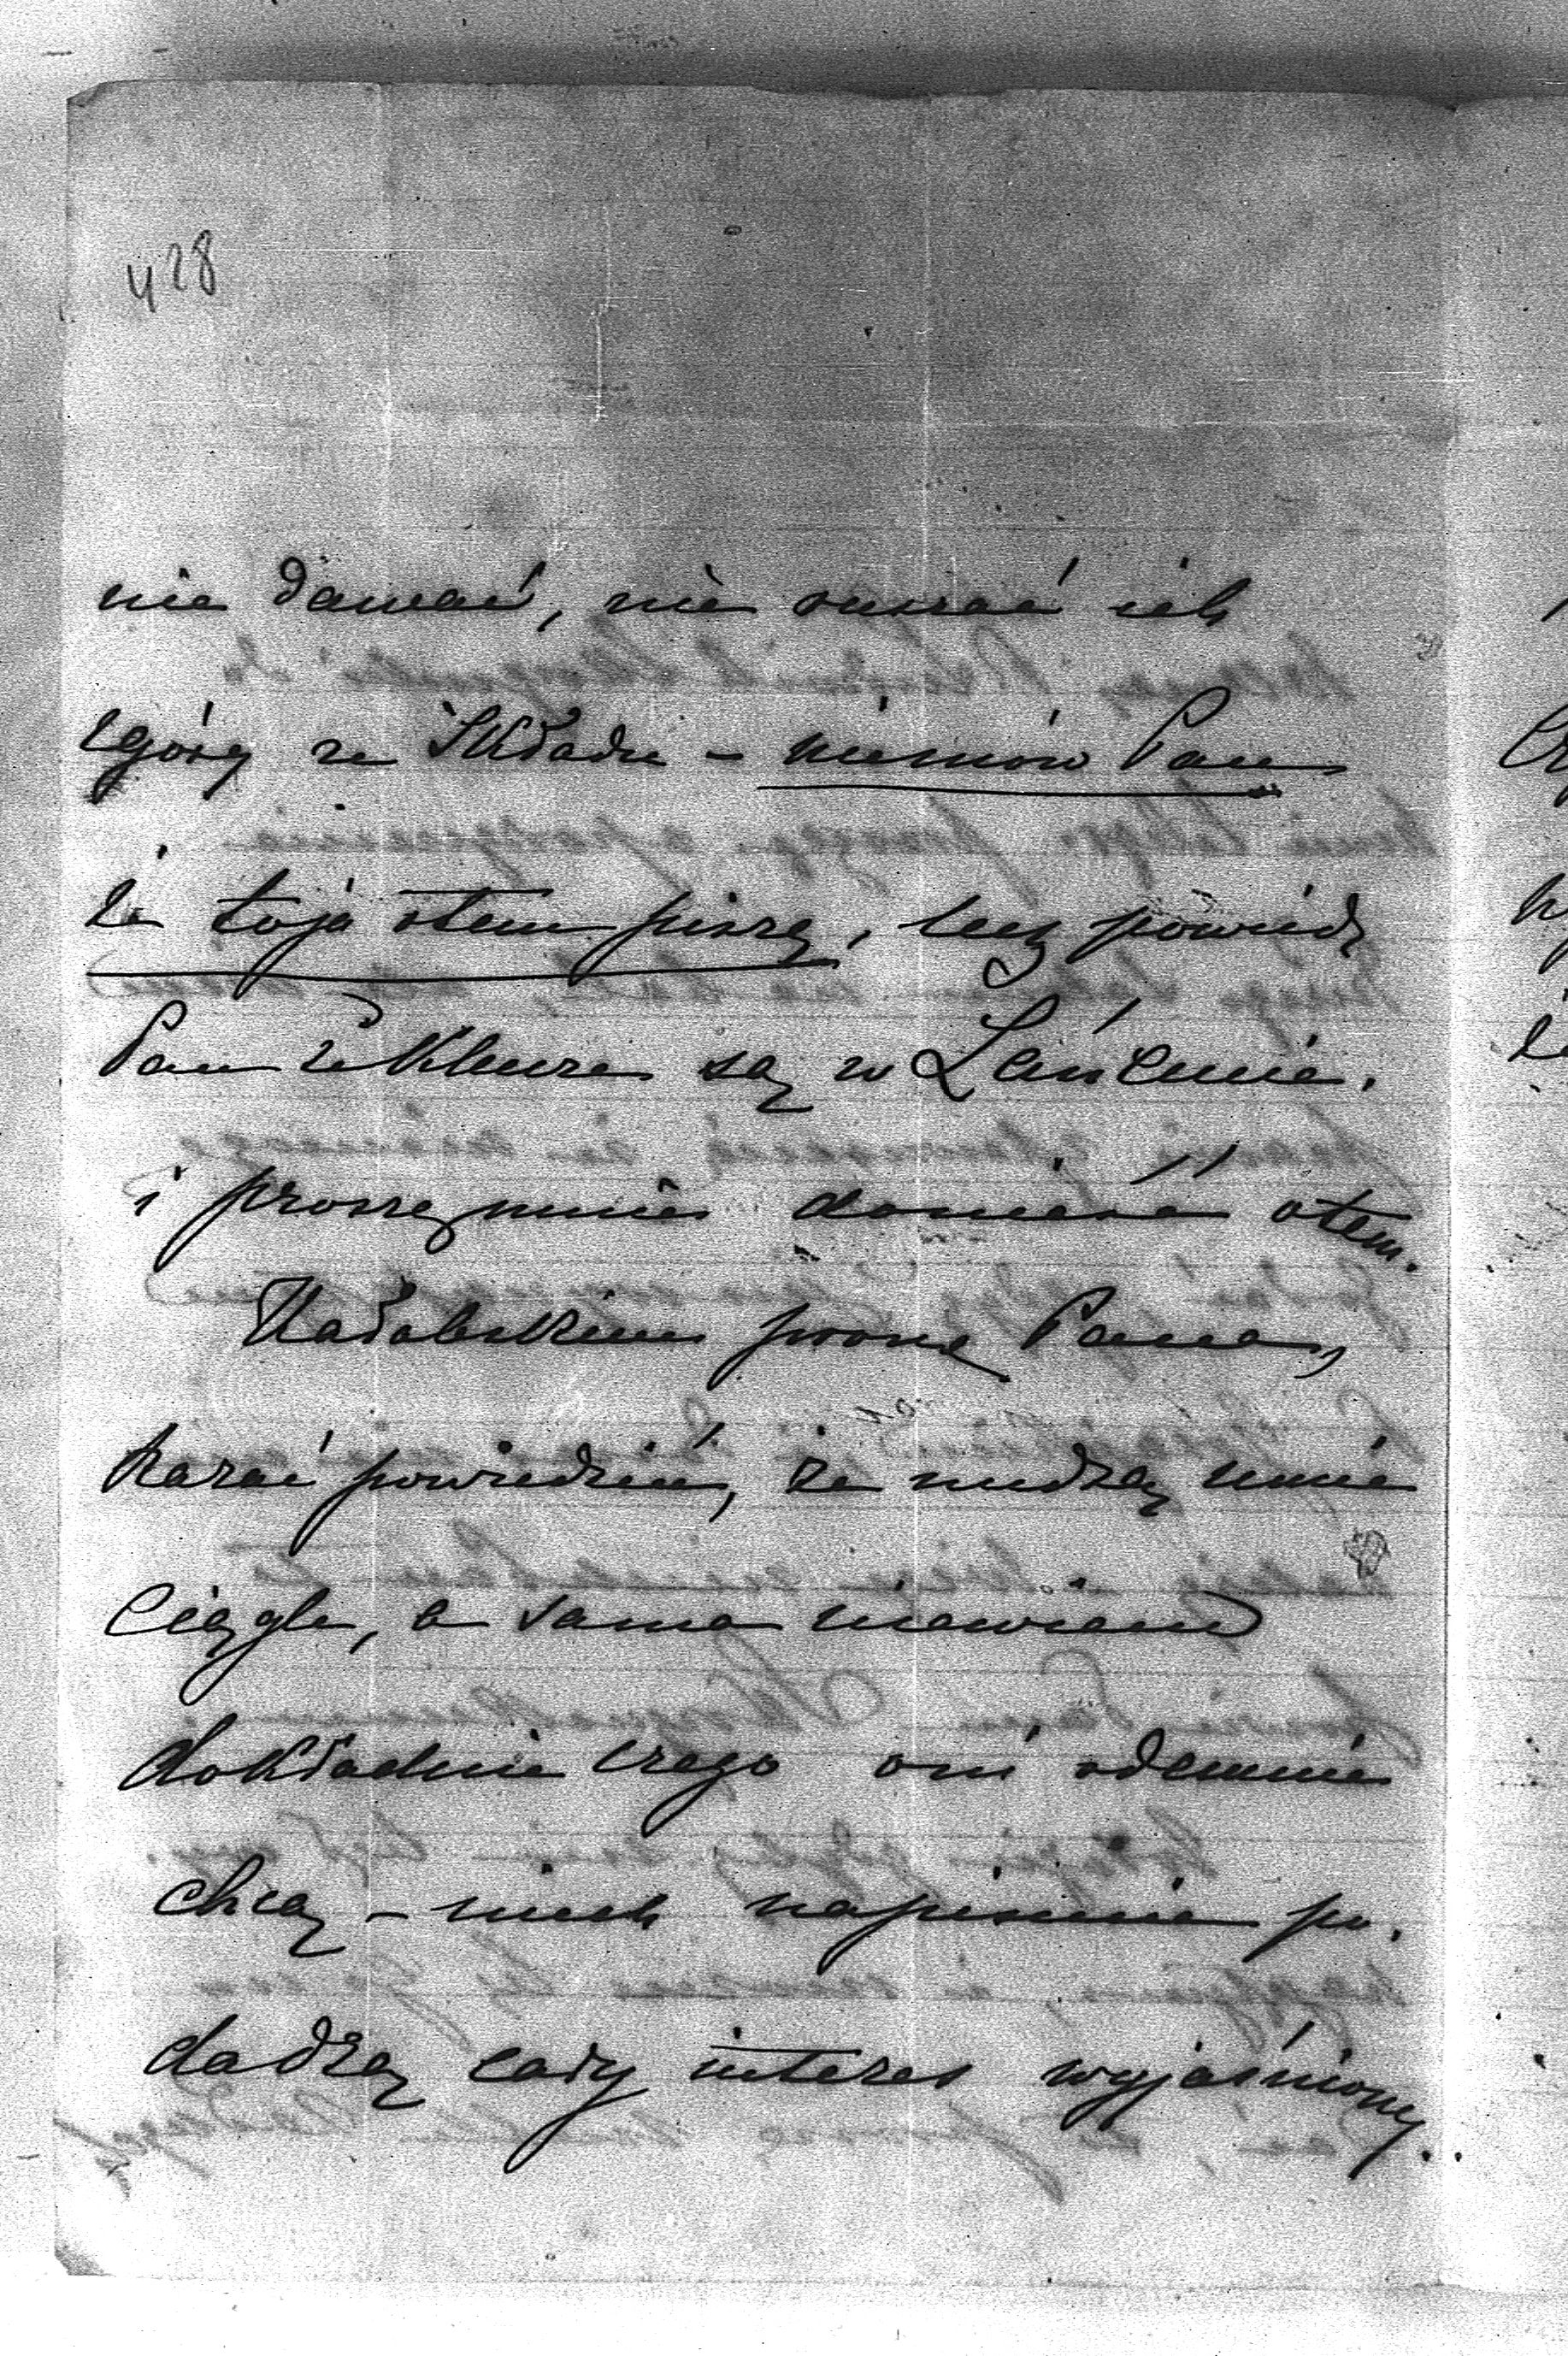 428
nie dawać, nie ruszać ich
zgóry ze Składu – niemów Pan
że toja otem piszę, lecz powiedz
Pan że klucze są w Łańcucie.
i proszęmnie donieść otem.
Nadolskiem proszę Pana,
kazać powiedzieć, że nudzą mnie
Ciągle, a sama niewiem
dokładnie czego oni odemnie
chcą – niech napismie po.
dadzą cały interes wyjaśniony.